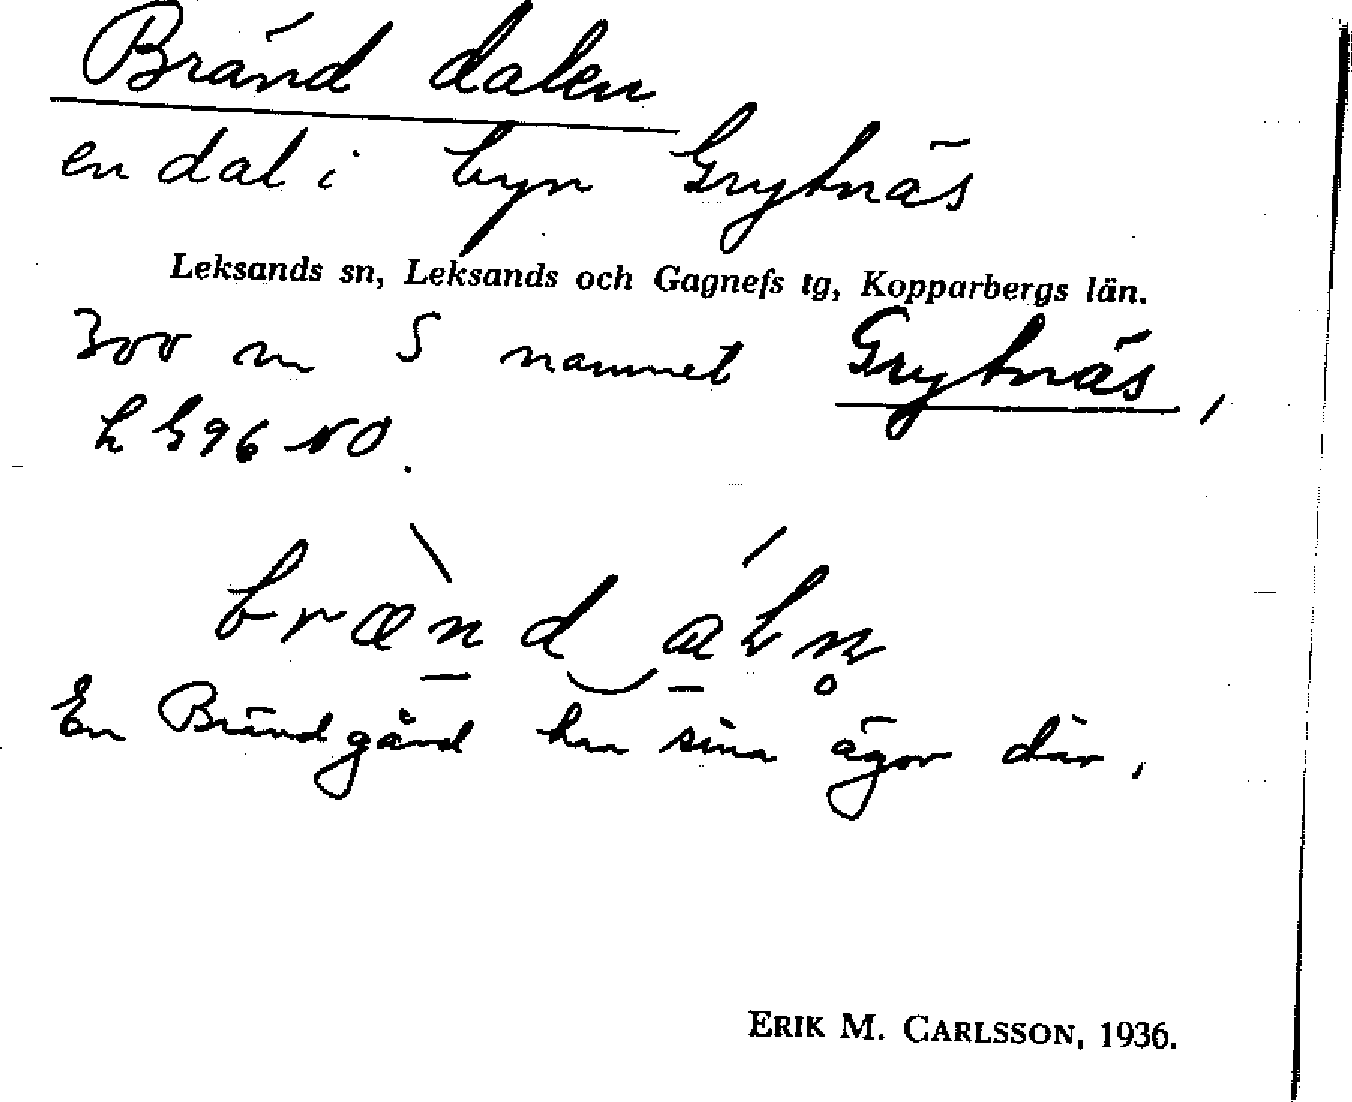 Bränd dalen
en dal i byn Grytnäs
Leksands sn, Leksands och Gagnefs tg, Kopparbergs län.
300 m S namnet Grytnäs,
596 NO.
brænd
En Brändgård har sina ägor där.
ERIK M. CARLSSON, 1936.